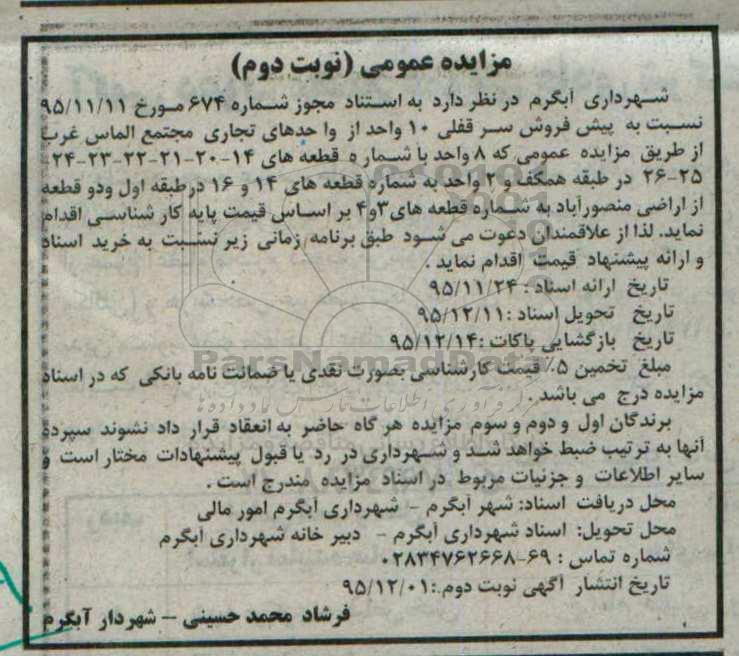 مزایده عمومی (نوبت دوم)
شهرداری آبگرم در نظر دارد به استناد مجوز شماره ۶۷۴ مورخ ۹۵/۱۱/۱۱
نسبت به پیش فروش سر قفلی ۱۰ واحد از وا حدهای تجاری مجتمع الماس غرب
از طریق مزایده عمومی که ۸ واحد با شماره قطعه های ۱۴-۲۰-۲۱-۲۲-۲۳-۲۴-
۲۵-۲۶ در طبقه همکف و ۲ واحد به شماره قطعه های ۱۴ و ۱۶ درطبقه اول ودو قطعه
از اراضی منصورآباد به شماره قطعه های۳و۴ بر اساس قیمت پایه کار شناسی اقدام
نماید. لذا از علاقمندان دعوت می شود طبق برنامه زمانی زیر نسبت به خرید اسناد
و ارائه پیشنهاد قیمت اقدام نماید .
تاریخ ارائه اسناد : ۹۵/۱۱/۲۴
تاریخ تحویل اسناد :۹۵/۱۲/۱۱
تاریخ بازگشایی پاکات :۹۵/۱۲/۱۴
ParsNamadData
مبلغ تخمین ۵٪ قیمت کارشناسی بصورت نقدی یا ضمانت نامه بانکی که در اسناد
مزایده درج می باشد
برندگان اول و دوم و سوم مزایده هر گاه حاضر به انعقاد قرار داد نشوند سپرده
آنها به ترتیب ضبط خواهد شد و شهرداری در رد یا قبول پیشنهادات مختار است و
سایر اطلاعات و جزنیات مربوط در اسناد مزایده مندرج است .
محل دریافت اسناد: شهر آبگرم - شهرداری آبگرم امور مالی
محل تحویل: اسناد شهرداری آبگرم - دبیر خانه شهرداری آبگرم
شماره تماس : ۶۹-۰۲۸۳۴۷۶۲۶۶۸
تاریخ انتشار آگهی نوبت دوم.:۹۵/۱۲/۰۱
فرشاد محمد حسینی - شهردار آبگرم